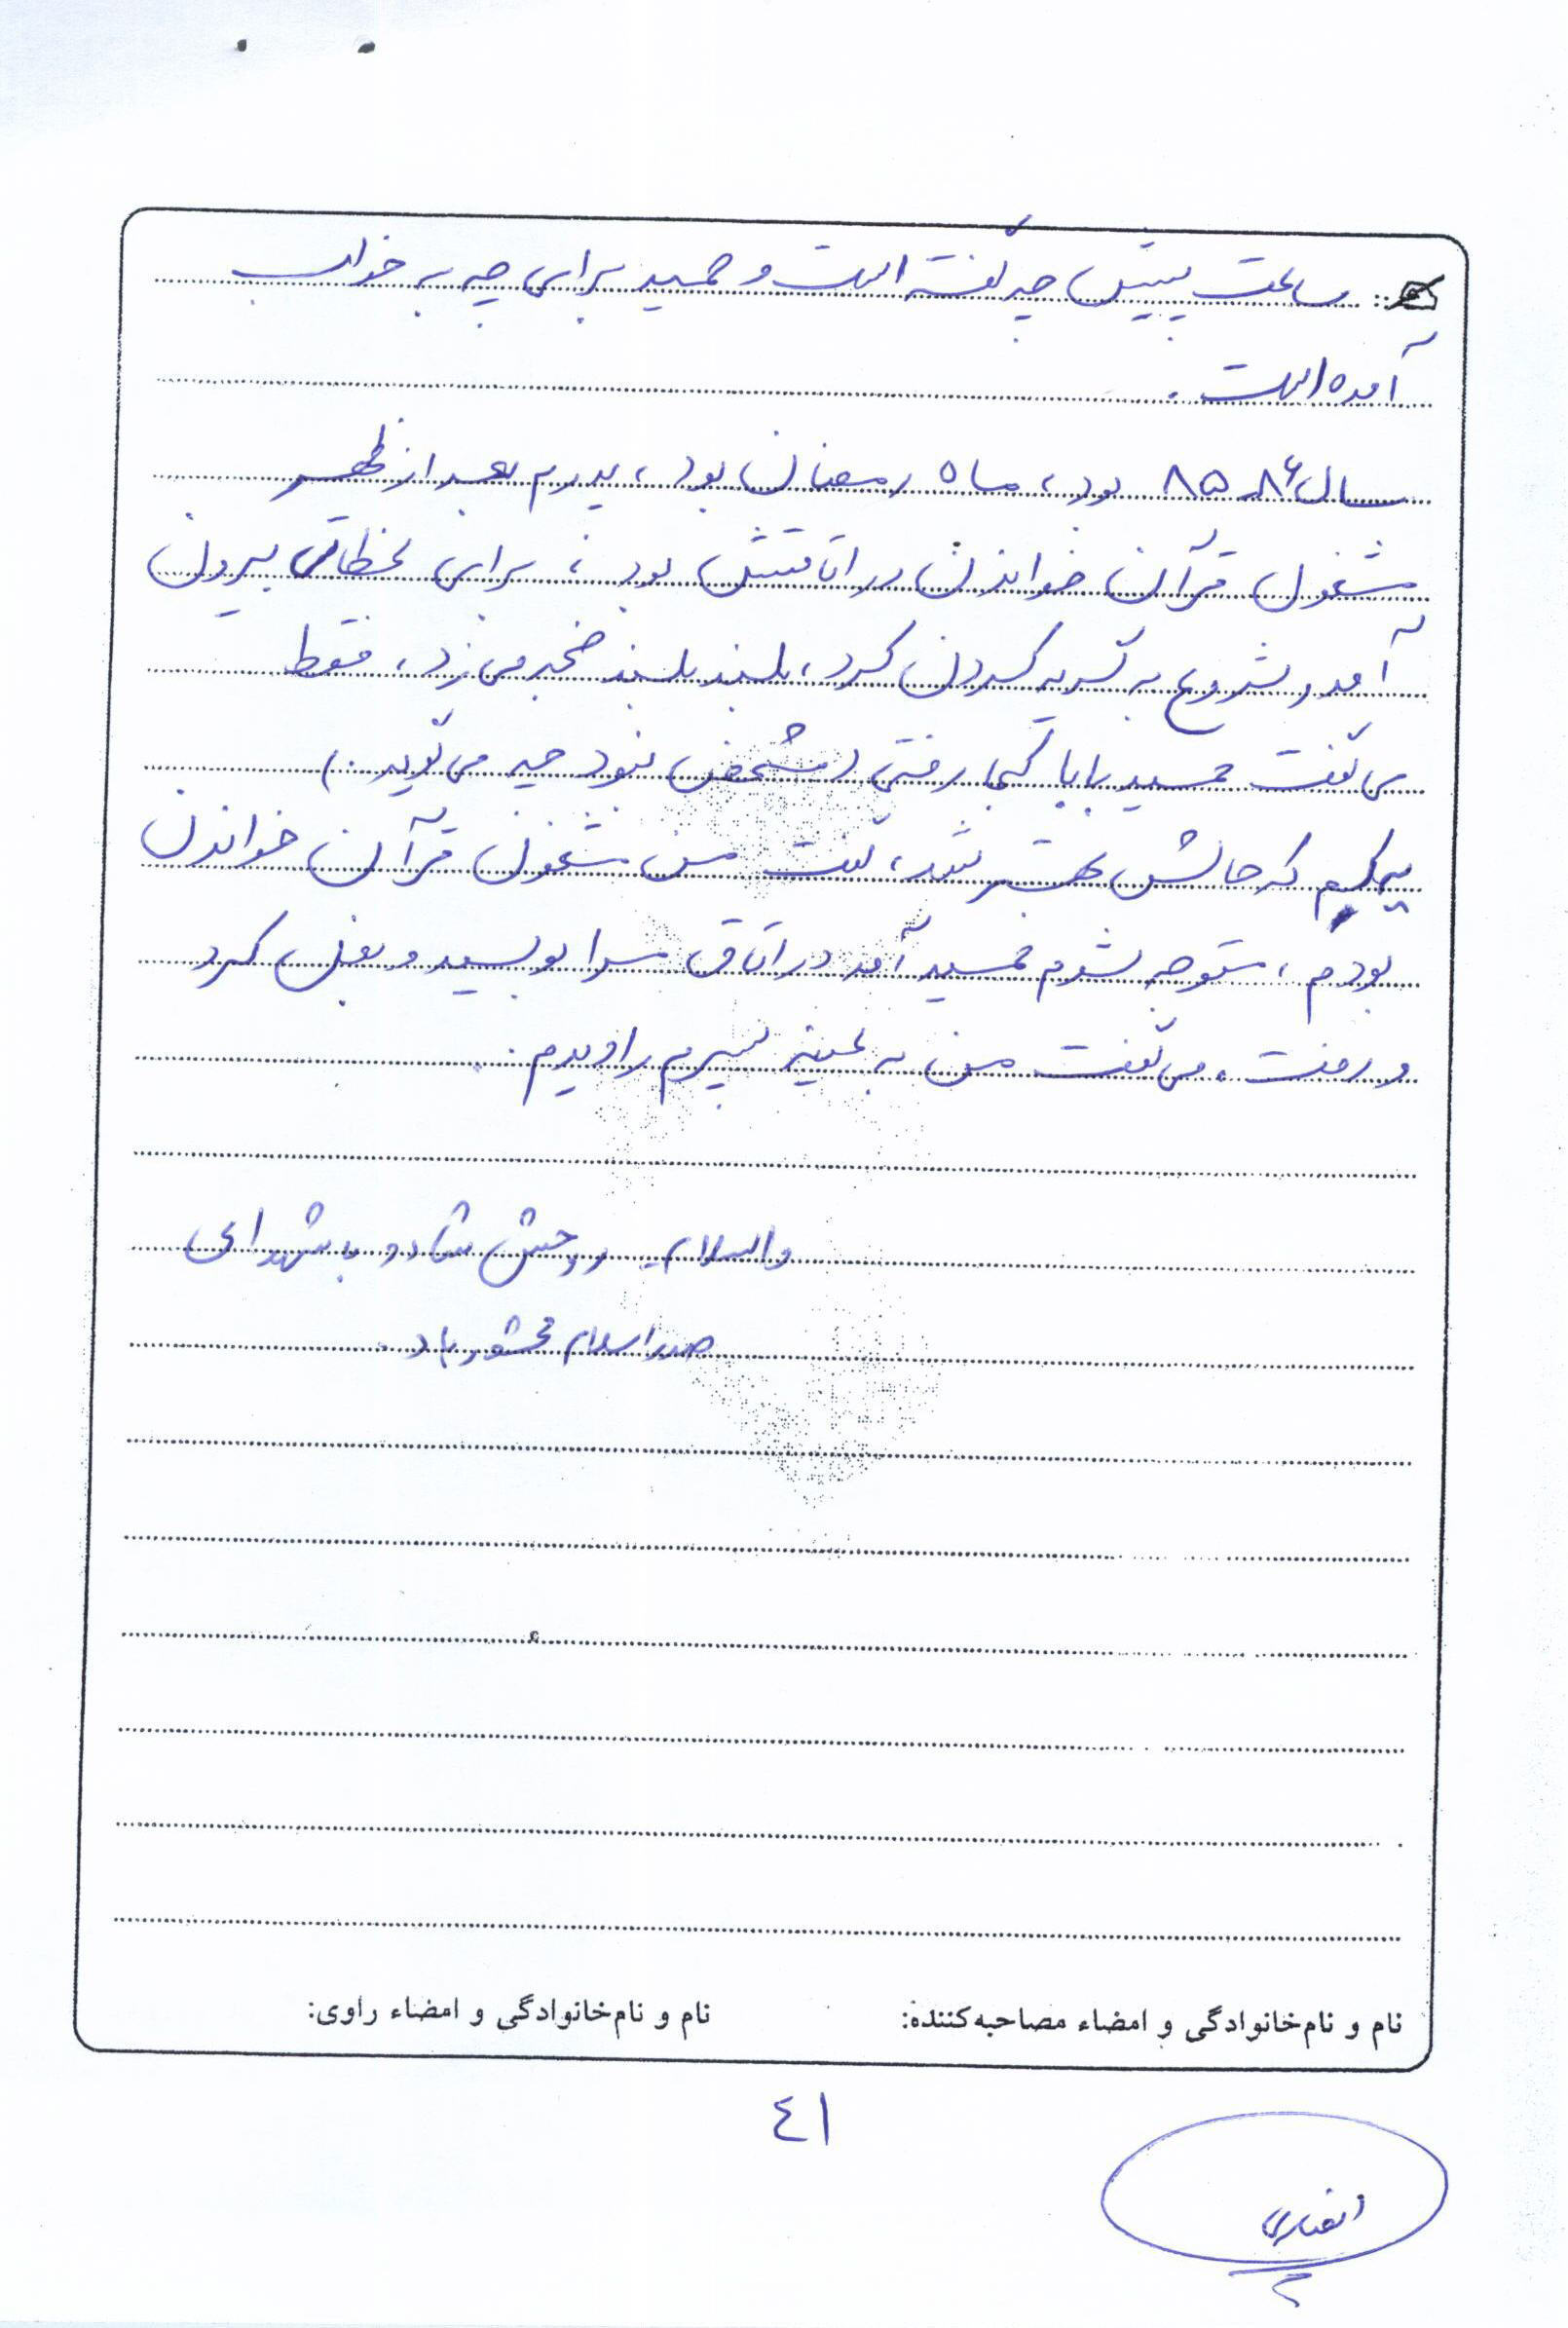 ساعت پیش چه گفته است و حمید برای چه به خواب
آمده است.
سال ۸۶ـ۸۵ بود، ماه رمضان بود، پدرم بعد از ظهر
مشغول قرآن خواندن در اتاقش بود، برای لحظاتی بیرون
آمد و شروع به گریه کردن کرد، بلند بلند ضجه می‌زد، فقط
می‌گفت حمید بابا کجا رفتی (مشخص نبود چه می‌گوید.)
یکم که حالش بهتر شد، گفت من مشغول قرآن خواندن
بودم، متوجه شدم حمید آمد در اتاق مرا بوسید و بغل کرد
و رفت. می‌گفت من به عینه پسرم را دیدم.
والسلام. روحش شاد و با شهدای
صدر اسلام محشور باد.
نام و نام‌خانوادگی و امضاء مصاحبه‌کننده: نام و نام‌خانوادگی و امضاء راوی:
٤١
انصاری